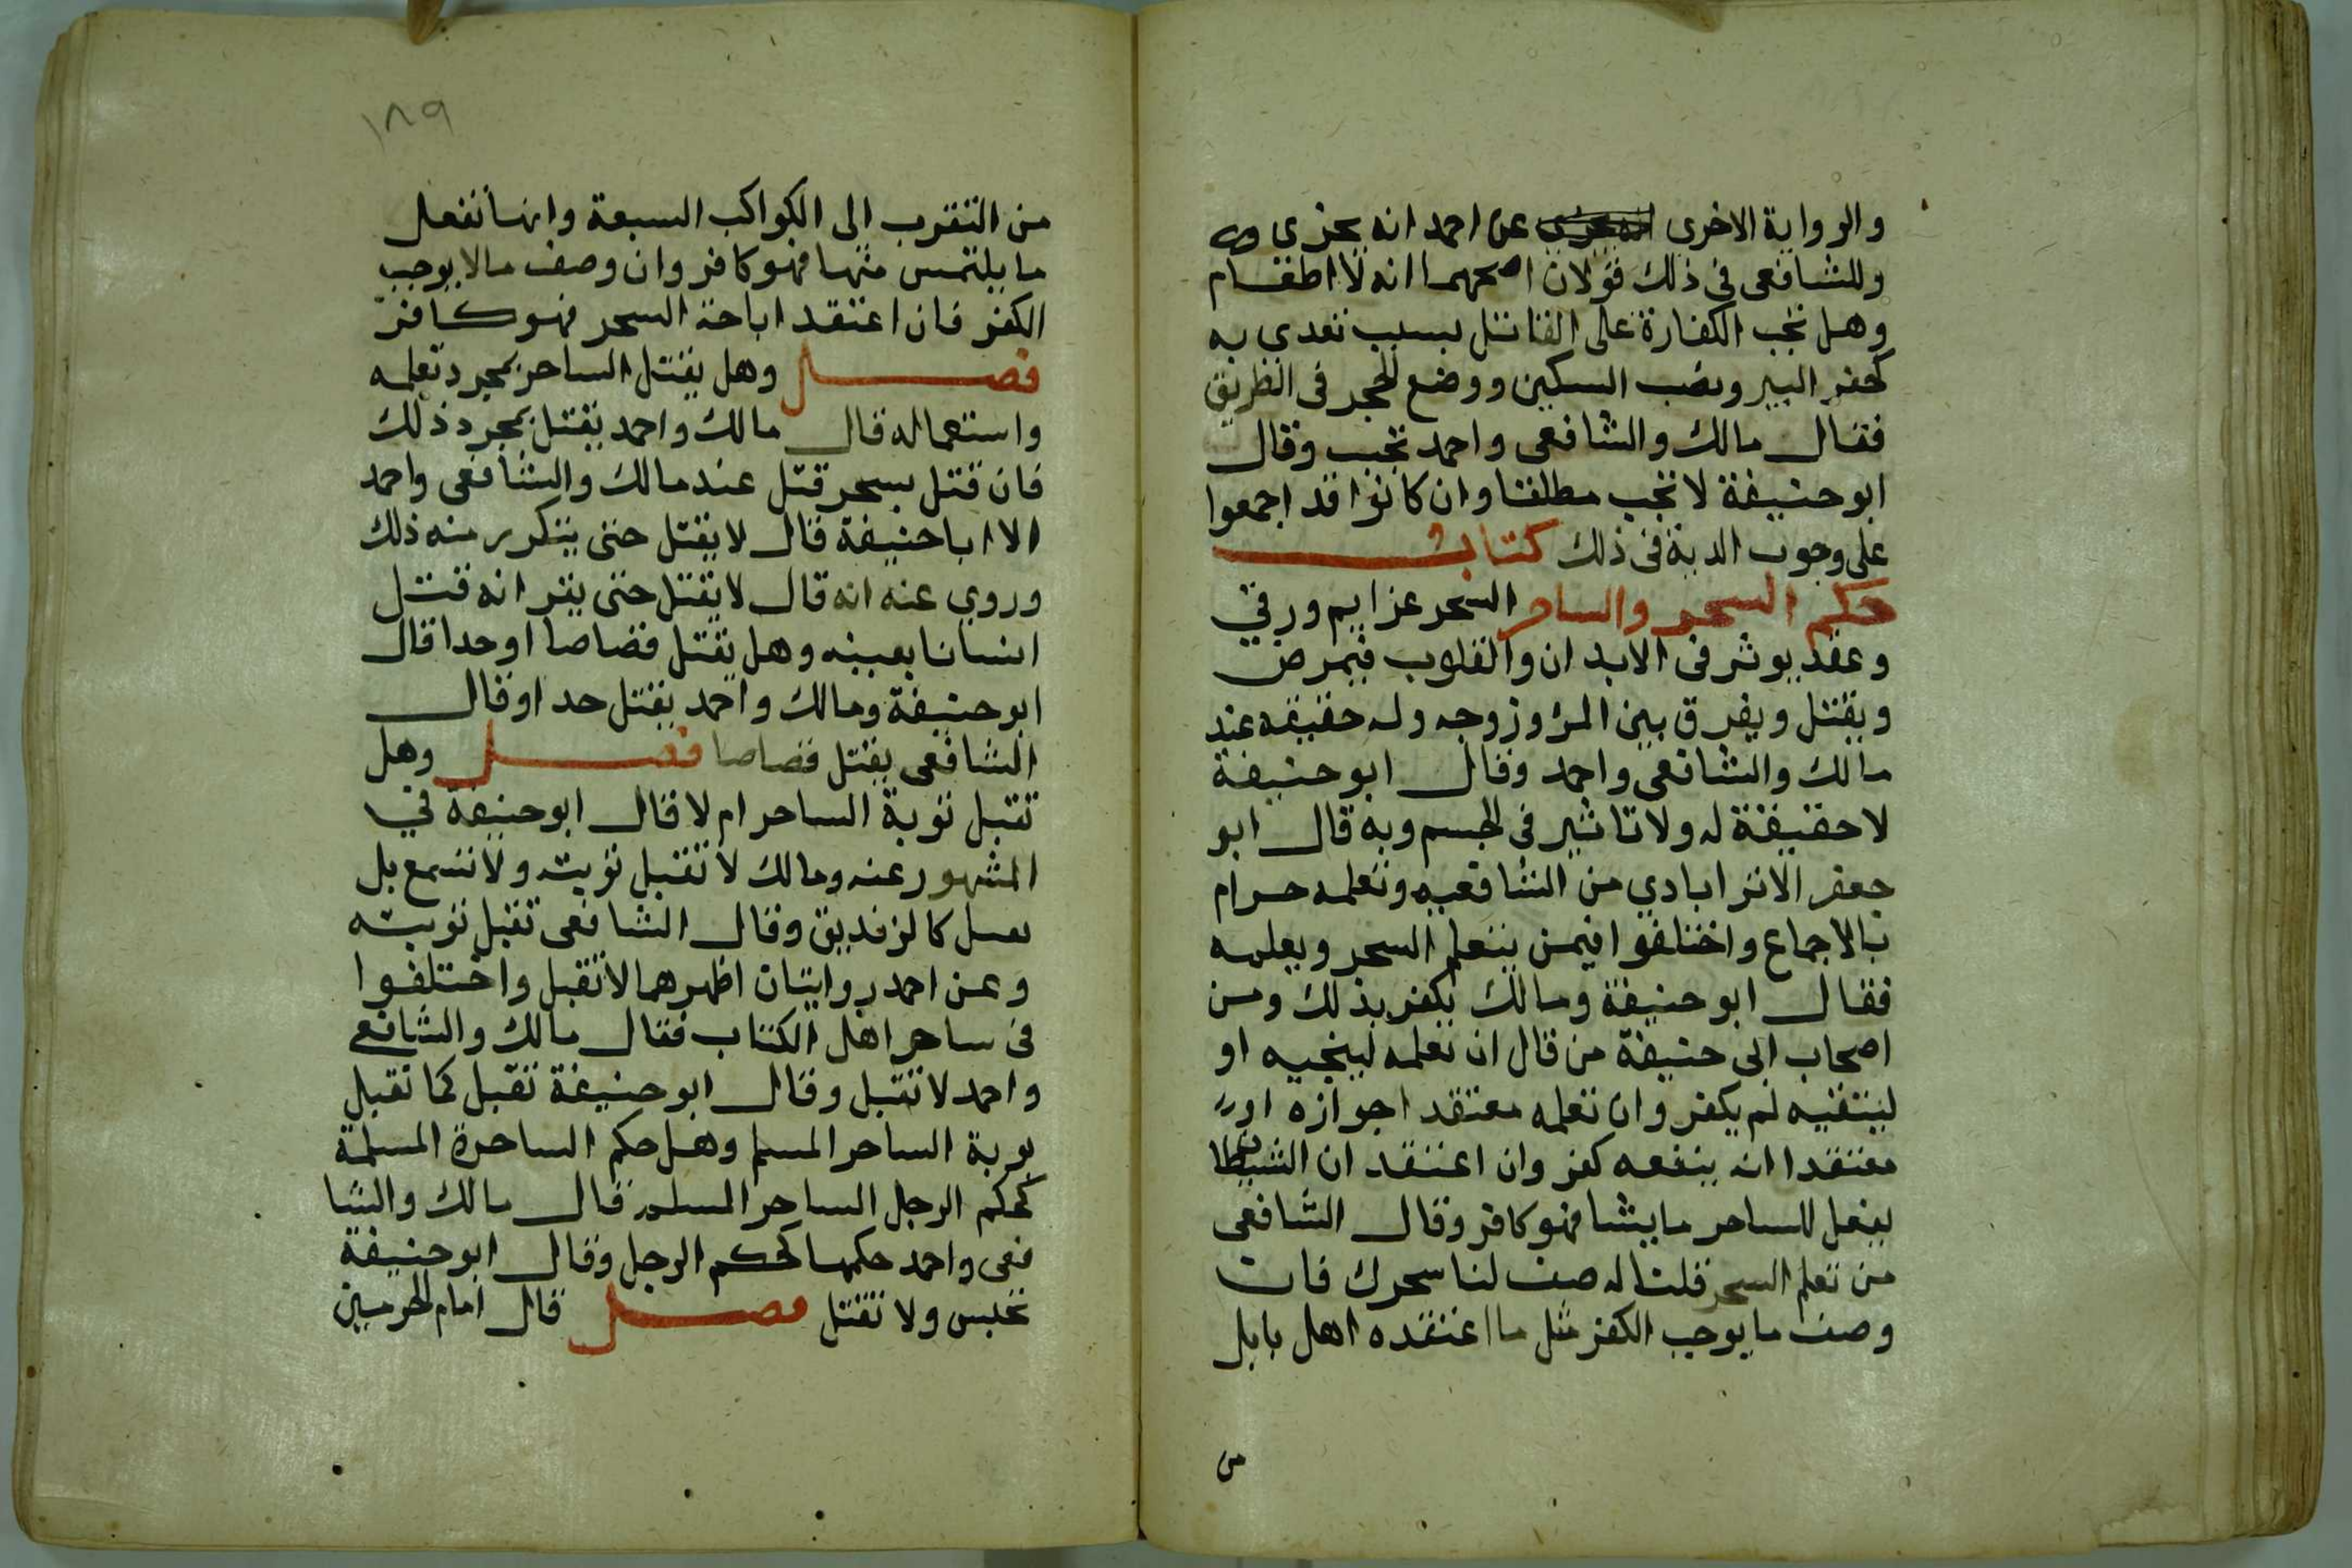 والرواية الاخرى عن احمد انه يجزى
وللشافعى فى ذلك قولان اصحهما انه لا اطعام
وهل تجب الكفارة على القاتل بسبب تعدي به
كحفر البير ونصب السكين ووضع الحجر فى الطريق
فقال مالك والشافعى واحمد تجب وقال
ابو حنيفة لا تجب مطلقا وان كانوا قد اجمعوا
على وجوب الدية فى ذلك كتاب
حكم السحر والساحر السحر عزايم ورقي
وعقد يوثر فى الابدان والقلوب فيمرض
ويقتل ويفرق بين المرؤ وزوجه وله حقيقه عند
مالك والشافعى واحمد وقال ابو حنيفة
لا حقيقة له ولا تاثير فى الجسم وبه قال ابو
جعفر الاتراباذي من الشافعيه وتعلمه حرام
بالاجماع واختلفوا فيمن يتعلم السحر ويعلمه
فقال ابو حنيفة ومالك يكفر بذلك ومن
اصحاب ابى حنيفة من قال ان تعلمه ليتجنبه او
ليتقيه لم يكفر وان تعلمه معتقدا جوازه او
معتقدا انه ينفعه كفر وان اعتقد ان الشيطان
يفعل للساحر ما يشا فهو كافر وقال الشافعى
من تعلم السحر قلنا له صف لنا سحرك فان
وصف ما يوجب الكفر مثل ما اعتقده اهل بابل
من
١٨٩
من التقرب الى الكواكب السبعة وانها تفعل
ما يلتمس منها فهو كافر وان وصف ما لا يوجب
الكفر فان اعتقد اباحة السحر فهو كافر
فصل وهل يقتل الساحر بمجرد تعلمه
واستعماله قال مالك واحمد يقتل بمجرد ذلك
فان قتل بسحر قتل عند مالك والشافعى واحمد
الا ابا حنيفة قال لا يقتل حتى يتكرر منه ذلك
وروي عنه انه قال لا يقتل حتى يقر انه قتل
انسانا بعينه وهل يقتل قصاصا او حدا قال
ابو حنيفة ومالك واحمد يقتل حدا وقال
الشافعى يقتل قصاصا فصل وهل
تقبل توبة الساحر ام لا قال ابو حنيفة في
المشهور عنه ومالك لا تقبل توبته ولا تسمع بل
يقتل كالزنديق وقال الشافعى تقبل توبته
وعن احمد روايتان اظهرهما لا تقبل واختلفوا
فى ساحر اهل الكتاب فقال مالك والشافعي
واحمد لا تقبل وقال ابو حنيفة تقبل كما تقبل
توبة الساحر المسلم وهل حكم الساحرة المسلمة
كحكم الرجل الساحر المسلم قال مالك والشا
فعى واحمد حكمها كحكم الرجل وقال ابو حنيفة
تحبس ولا تقتل فصل قال امام الحرمين